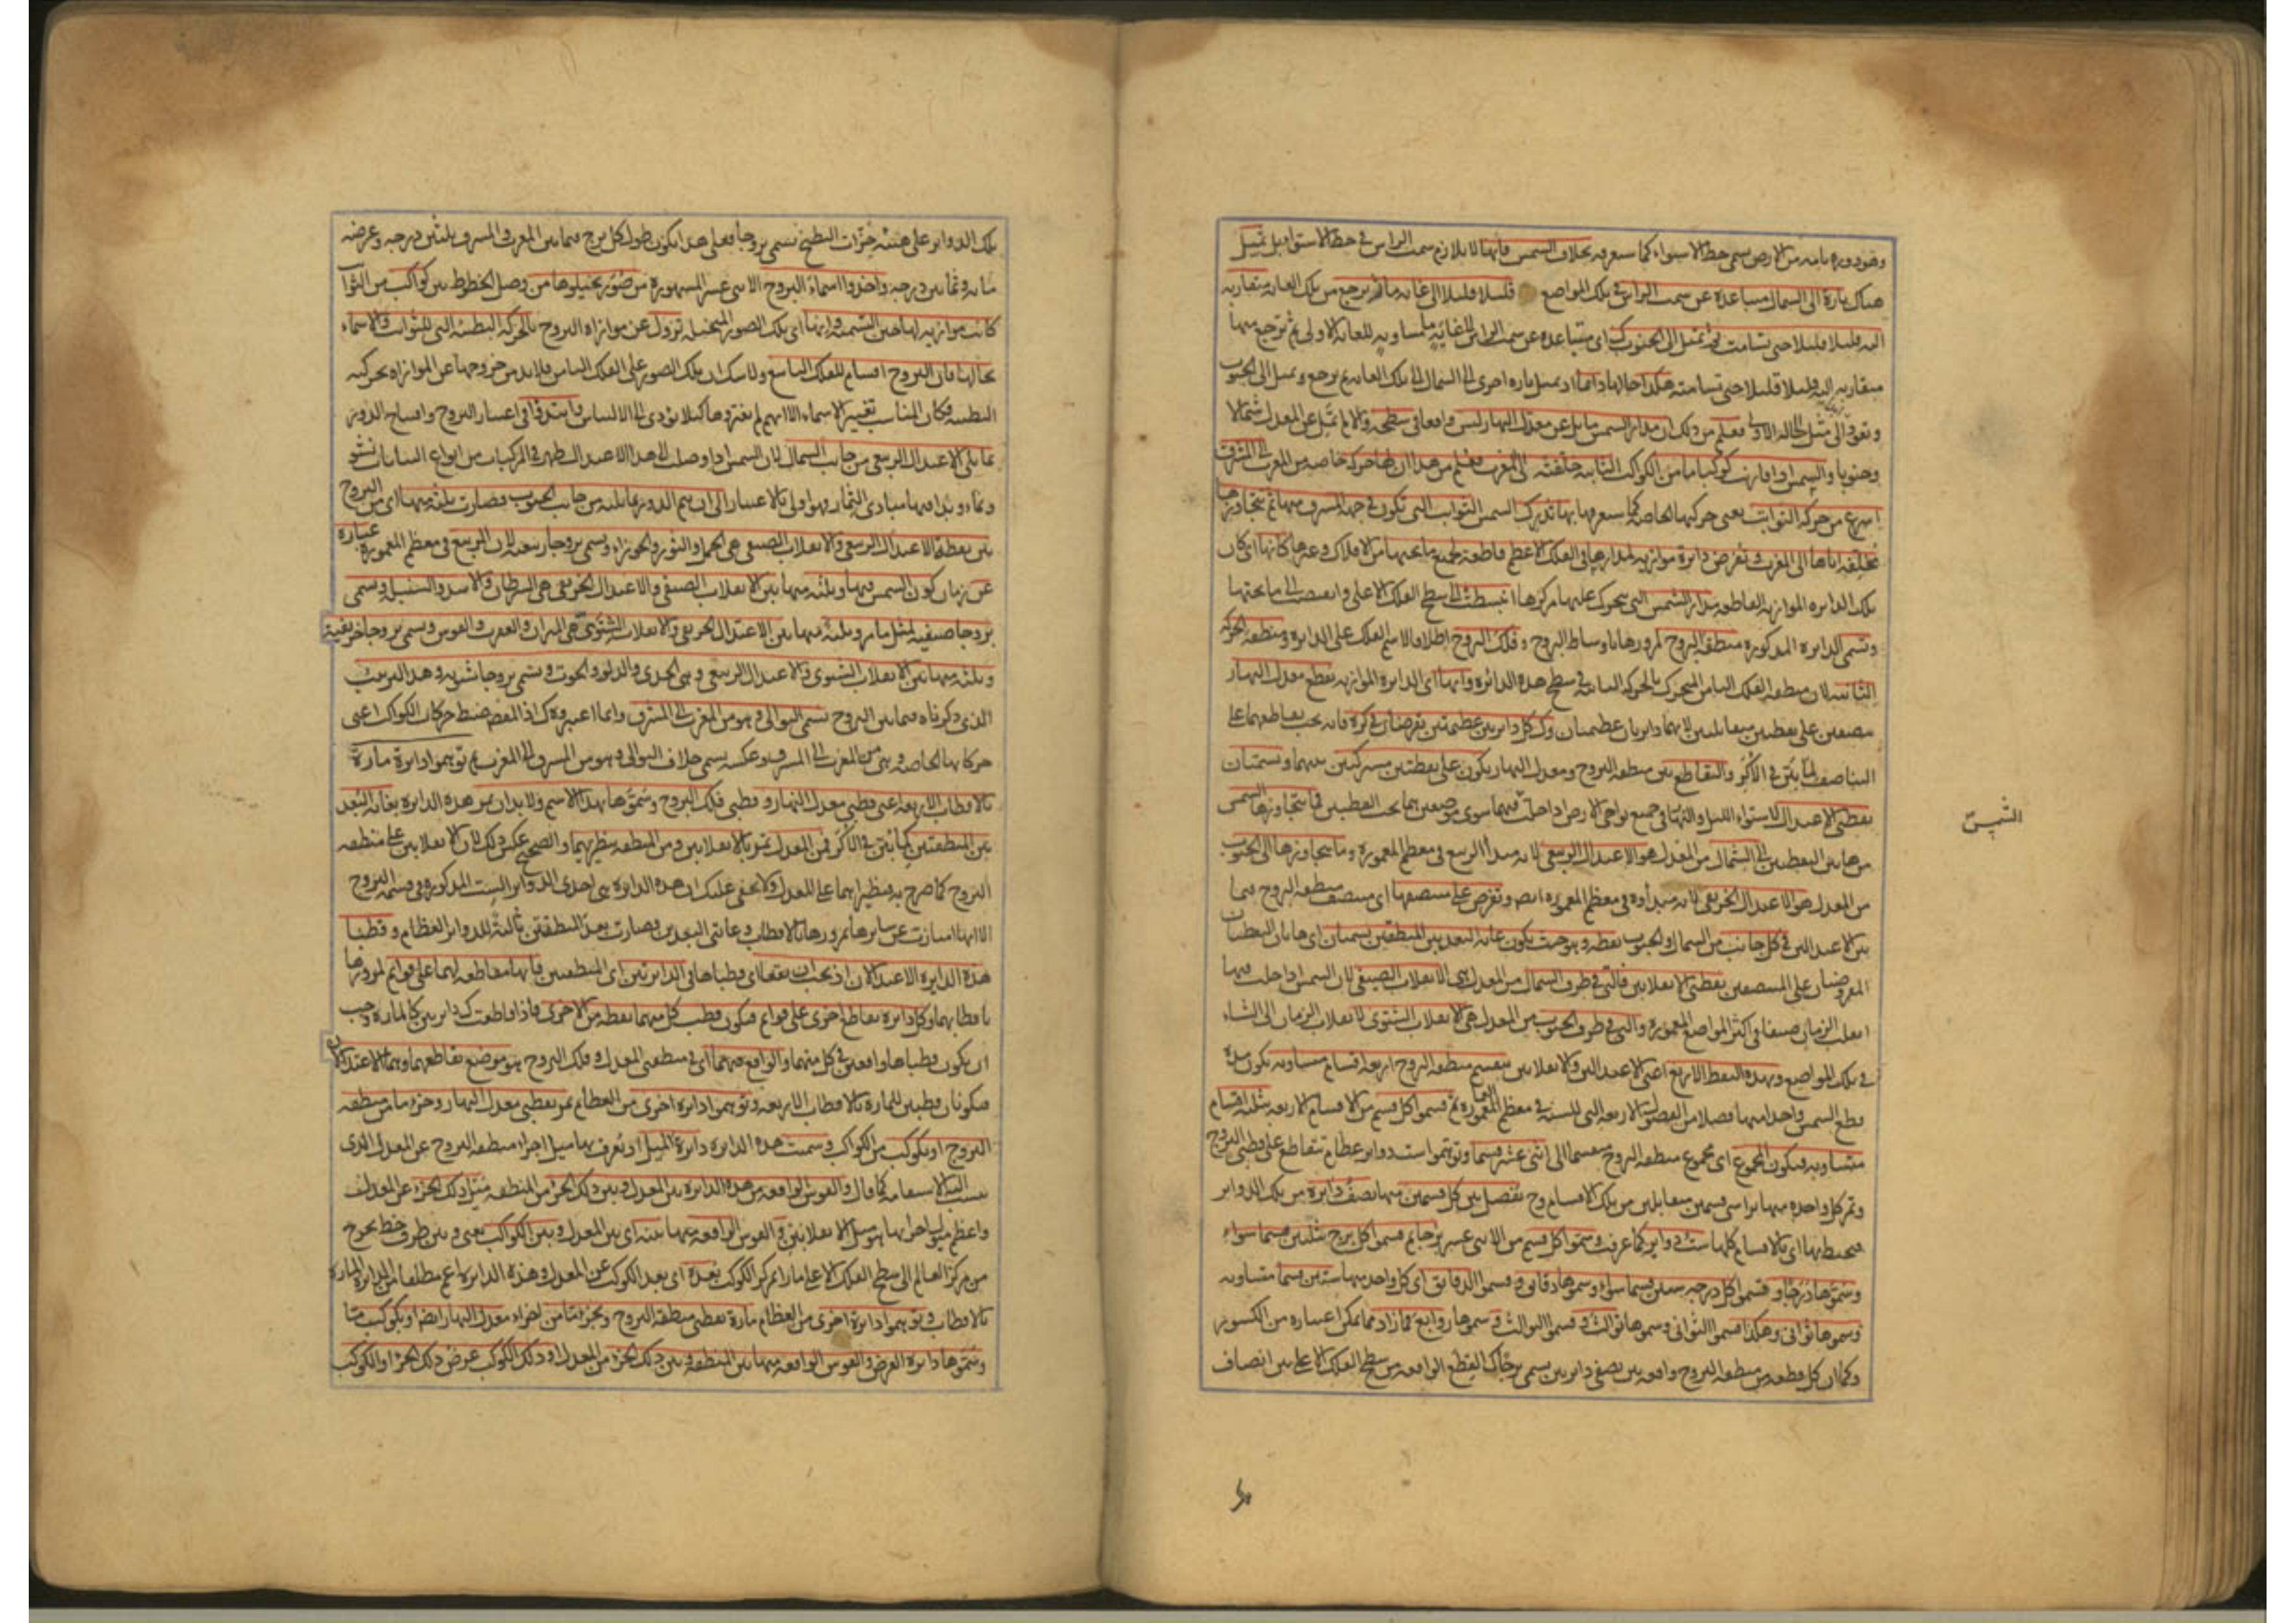 وهو دوره تامه من الارض يسمى خط الاستواء كما ستعرفه بخلاف الشمس فانها لا يلازم سمت الراس في خط الاستواء بل تميل
هناك تارة الى الشمال متباعدة عن سمت الراس في تلك المواضع قليلا قليلا الى غاية ما ثم يرجع من تلك الغاية متقاربه
اليه قليلا قليلا حتى تسامت ثم تميل الى الجنوب كذلك اى متباعدة عن سمت الراس الى غاية مساويه للغاية الاولى ثم ترجع منها
متقاربه اليه قليلا قليلا حتى تسامته هكذا حالها دائما اذ تميل تاره اخرى الى الشمال الى تلك الغايه ثم يرجع وتميل الى الجنوب
وتعود الى مثل الحاله الاولى فعلم من ذلك ان مدار الشمس مايل عن معدل النهار ليس واقعا في سطحه والا لم تمل عن المعدل شمالا
وجنوبا والشمس اذا قارنت كوكبا ما من الكواكب الثابته خلفته الى المغرب فعلم من هذا ان لها حركه خاصه من المغرب الى المشرق
اسرع من حركه الثوابت يعنى حركتها الخاصه كما ستعرفها بها تدرك الشمس الثوابت التى تكون في جهه المشرق منها ثم تتجاوزها
مخلفه اياها الى المغرب وتفرض دايرة موازيه لمدارها في الفلك الاعظم قاطعه لجميع ما تحتها من الافلاك وغيرها كانها اى كان
تلك الدايره الموازيه القاطعه مدار الشمس التى يتحرك عليها مركزها انبسطت الى سطح الفلك الاعلى وانقبضت الى ما تحتها
وتسمى الدايره المذكوره منطقه البروج لمرورها باوساط البروج وفلك البروج اطلاقا لاسم الفلك على الدايره ومنطقه الحركه
الثانيه لان منطقه الفلك الثامن المتحرك بالحركه الثانيه في سطح هذه الدائره وانها اى الدايره الموازيه تقطع معدل النهار
بنصفين على نقطتين متقابلتين لانهما دايرتان عظيمتان وكل دايرتين عظيمتين تفرضان في كره فانه يجب تقاطعهما على
التناصف لما بين في الاكر والتقاطع بين منطقه البروج ومعدل النهار يكون على نقطتين مشتركتين بينهما وتسميان
نقطتى الاعتدال لاستواء الليل والنهار في جميع نواحى الارض اذا حلت فيهما سوى موضعين هما تحت القطبين فما تتجاوزها الشمس
الشمس
من هاتين النقطتين الى الشمال من المعدل هو الاعتدال الربيعى لانه مبدأ الربيع في معظم المعموره وما يتجاوزها الى الجنوب
من المعدل هو الاعتدال الخريفى لانه مبدأوه في معظم المعموره ايضا وتفرض على منتصفها اى منتصف منطقه البروج فيما
بين الاعتدالين في كل جانب من الشمال والجنوب نقطه وبحيث يكون غايه البعد بين المنطقتين يسميان اى هاتان النقطتان
المفروضتان على المنتصفين نقطتى الانقلابين فالتى في طرف الشمال من المعدل هى الانقلاب الصيفى لان الشمس اذا حلت فيها
انقلب الزمان صيفا في اكثر المواضع المعموره والتى في طرف الجنوب من المعدل هى الانقلاب الشتوى لانقلاب الزمان الى الشتاء
في تلك المواضع وبهذه النقط الاربع اعنى الاعتدالين والانقلابين ينقسم منطقه البروج اربعه اقسام متساويه يكون مدة
قطع الشمس واحدا منها فصلا من الفصول الاربعه التى للسنه في معظم المعموره ثم قسموا كل قسم من الاقسام الاربعه بثلثه اقسام
متساويه فيكون المجموع اى مجموع منطقه البروج منقسما الى اثنى عشر قسما وتوهموا ست دواير عظام تتقاطع على قطبى البروج
وتمر كل واحده منها براسى قسمين متقابلين من تلك الاقسام وح تفصل بين كل قسمين منها نصف دايرة من تلك الدواير
فيحيط بها اى بالاقسام كلها ست دواير كما عرفت وسموا كل قسم من الاثنى عشر برجا ثم قسموا كل برج بثلثين قسما سواء
وسموها درجا وقسموا كل درجه ستين قسما سواء وسموها دقايق وقسموا الدقايق اى كل واحد منها ستين قسما متساويه
وسموها ثوانى وهكذا قسموا الثوانى وسموها ثوالث وقسموا الثوالث وسموها روابع فما زاد مما يمكن اعتباره من الكسور
وكما ان كل قطعه من منطقه البروج واقعه بين نصفى دايرتين يسمى برجا كذلك القطع الواقعه من سطح الفلك الاعلى بين انصاف
تلك الدواير على هيئة حزات البطيخ تسمى بروجا فعلى هذا يكون طول كل برج فيما بين المغرب والمشرق ثلثين درجه وعرضه
مايه وثمانين درجه واخذوا اسماء البروج الاثنى عشر المشهورة من صور تخيلوها من وصل الخطوط بين كواكب من الثوابت
كانت موازيه لها حين التسمية وانها اى تلك الصور المتخيله تزول عن موازاه البروج بالحركه البطيئه التى للثوابت والاسماء
بحالها فان البروج اقسام للفلك التاسع ولا شك ان تلك الصور على الفلك الثامن فلابد من خروجها عن الموازاه بحركته
البطيئه فكان المناسب تغيير الاسماء الا انهم لم يغيروها كيلا يؤدى الى الالتباس وابتدؤا في اعتبار البروج وافتتاح الدور
مما يلى الاعتدال الربيعى من جانب الشمال لان الشمس اذا وصلت الى هذا الاعتدال ظهر في المركبات من انواع النباتات نشو
ونماء وبدا فيها مبادى الثمار فهو اولى بالاعتبار الى ان يتم الدور بما يليه من جانب الجنوب فصارت ثلثه منها اى من البروج
بين نقطة الاعتدال الربيعى والانقلاب الصيفى هى الحمل والثور والجوزاء وتسمى بروجا ربيعيه لان الربيع في معظم المعموره عباره
عن زمان كون الشمس فيها وثلثه منها بين الانقلاب الصيفى والاعتدال الخريفى هى السرطان والاسد والسنبله وتسمى
بروجا صيفيه لمثل ما مر وثلثه منها بين الاعتدال الخريفى والانقلاب الشتوى هى الميزان والعقرب والقوس وتسمى بروجا خريفية
وثلثه منها بين الانقلاب الشتوى والاعتدال الربيعى وهى الجدى والدلو والحوت وتسمى بروجا شتويه وهذا الترتيب
الذى ذكرناه فيما بين البروج تسمى التوالى وهو من المغرب الى المشرق وانما اعتبروه كذلك اذ المقصد ضبط حركات الكواكب اعنى
حركاتها الخاصه وهى من المغرب الى المشرق وعكسه يسمى خلاف التوالى وهو من المشرق الى المغرب ثم توهموا دايرة مارة
بالاقطاب الاربعه اعنى قطبى معدل النهار وقطبى فلك البروج وسموها بهذا الاسم ولابد ان تمر هذه الدايره بغايه البعد
بين المنطقتين كما بين في الاكر فمن المعدل تمر بالانقلابين ومن المنطقه بنظيريهما والصحيح عكس ذلك لان الانقلابين على منطقه
البروج كما صرح به ونظيراهما على المعدل ولا يخفى عليك ان هذه الدايره هى احدى الدواير الست المذكوره في قسمه البروج
الا انها امتازت عن سايرها بمرورها بالاقطاب وغايتى البعدين وصارت بعد المنطقتين ثالثة للدواير العظام وقطبا
هذه الدايره الاعتدالان اذ يجب ان يقعا اى قطباها في الدايرتين اى المنطقتين فانها مقاطعه لهما على قوايم لمرورها
باقطابهما وكل دايره تقاطع اخرى على قوايم فيكون قطب كل منهما نقطه من الاخرى فاذا قاطعت دايرتين كالماره وجب
ان يكون قطباها واقعين في كل منهما والواقع فيهما اى في منطقتى المعدل وفلك البروج هو موضع تقاطعهما وهما الاعتدالان
فيكونان قطبين للمارة بالاقطاب الاربعه وتوهموا دايره اخرى من العظام تمر بقطبى معدل النهار وجزء ما من منطقه
البروج او بكوكب من الكواكب وسميت هذه الدايره دايرة الميل اذ يعرف بها ميل اجزاء منطقه البروج عن المعدل الذى
ينسب اليه الاستقامه كما قال والقوس الواقعه من هذه الدايره بين المعدل وبين ذلك الجزء من المنطقه ميل ذلك الجزء عن المعدل
واعظم ميول اجزائها هو ميل الانقلابين والقوس الواقعه منها بينه اى بين المعدل وبين الكواكب يعنى وبين طرف خط يخرج
من مركز العالم الى سطح الفلك الاعلى مارا بمركز الكوكب بعده اى بعد الكوكب عن المعدل وهذه الدايره اعم مطلقا من الدايره الماره
بالاقطاب وتوهموا دايرة اخرى من العظام مارة بقطبى منطقه البروج وبجزء ما من اجزاء معدل النهار ايضا او بكوكب ما
وسموها دايره العرض والقوس الواقعه منها بين المنطقه وبين ذلك الجزء من المعدل او ذلك الكوكب عرض ذلك الجزء او الكوكب